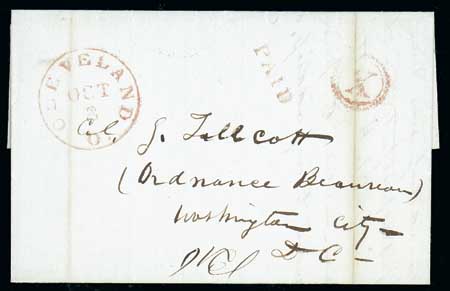 CLEVELAND O.
OCT
PAID
X
Col. G. Tallcott
(Ordnance Beaureau)
Washington City
D C